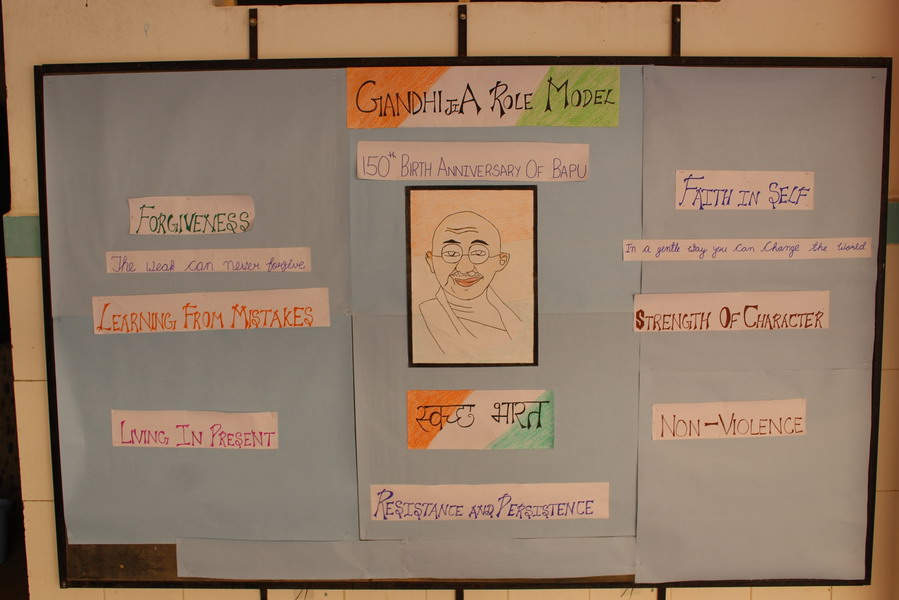 GANDHI JI A ROLE MODEL
150th BIRTH ANNIVERSARY OF BAPU
FORGIVENESS
The weak can never forgive
LEARNING FROM MISTAKES
LIVING IN PRESENT
स्वच्छ भारत
RESISTANCE AND PERSISTENCE
FAITH IN SELF
In a gentle way you can Change the World
STRENGTH OF CHARACTER
NON-VIOLENCE